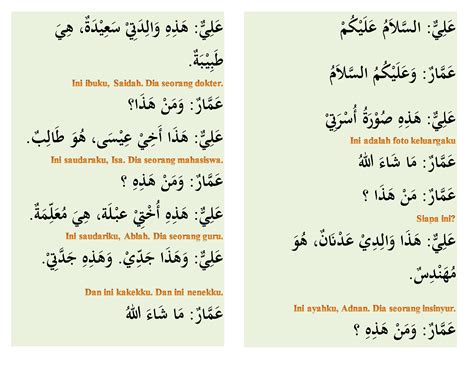 عَلِيٌّ: السَّلاَمُ عَلَيْكُمْ
عَمَّارٌ: وَعَلَيْكُمُ السَّلاَمُ
عَلِيٌّ: هَذِهِ صُوْرَةُ أُسْرَتِيْ
Ini adalah foto keluargaku
عَمَّارٌ: مَا شَاءَ اللهُ
عَمَّارٌ: مَنْ هَذَا ؟
Siapa ini?
عَلِيٌّ: هَذَا وَالِدِيْ عَدْنَانُ، هُوَ
مُهَنْدِسٌ.
Ini ayahku, Adnan. Dia seorang insinyur.
عَمَّارٌ: وَمَنْ هَذِهِ ؟
عَلِيٌّ: هَذِهِ وَالِدَتِيْ سَعِيْدَةُ، هِيَ
طَبِيْبَةٌ.
Ini ibuku, Saidah. Dia seorang dokter.
عَمَّارٌ: وَمَنْ هَذَا؟
عَلِيٌّ: هَذَا أَخِيْ عِيْسَى، هُوَ طَالِبٌ.
Ini saudaraku, Isa. Dia seorang mahasiswa.
عَمَّارٌ: وَمَنْ هَذِهِ ؟
عَلِيٌّ: هَذِهِ أُخْتِيْ عَبْلَة، هِيَ مُعَلِّمَةٌ.
Ini saudariku, Ablah. Dia seorang guru.
عَلِيٌّ: وَهَذَا جَدِّيْ. وَهَذِهِ جَدَّتِيْ.
Dan ini kakekku. Dan ini nenekku.
عَمَّارٌ: مَا شَاءَ اللهُ